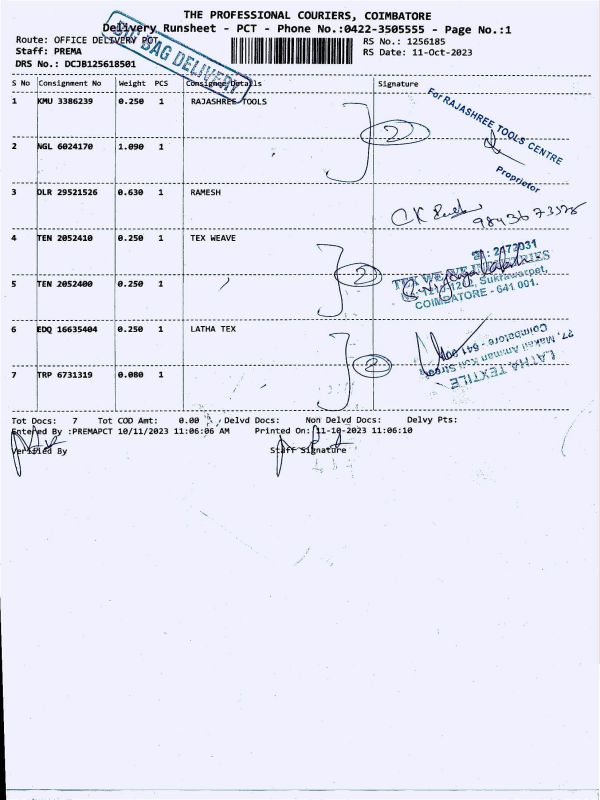 THE PROFESSIONAL COURIERS, COIMBATORE
Delivery Runsheet - PCT - Phone No.:0422-3505555 - Page No.:1
Route: OFFICE DELIVERY POT
RS No.: 1256185
Staff: PREMA
RS Date: 11-Oct-2023
DRS No.: DCJB125618501
BAG DELIVERY
S No Consignment No Weight PCS Consignee Details Signature
1 KMU 3386239 0.250 1 RAJASHREE TOOLS
For RAJASHREE TOOLS CENTRE
Proprietor
2
2 NGL 6024170 1.090 1
3 DLR 29521526 0.630 1 RAMESH
4 TEN 2052410 0.250 1 TEX WEAVE
2
: 2472031
TEX WEAVE INDUSTRIES
Sukrawarpet,
COIMBATORE - 641 001.
5 TEN 2052400 0.250 1
6 EDQ 16635404 0.250 1 LATHA TEX
2
LATHA TEXTILE
27, Makali Amman Koil Street
Coimbatore - 641 001
7 TRP 6731319 0.080 1
Tot Docs: 7 Tot COD Amt: 0.00 Delvd Docs: Non Delvd Docs: Delvy Pts:
Entered By :PREMAPCT 10/11/2023 11:06:06 AM Printed On: 11-10-2023 11:06:10
Verified By Staff Signature